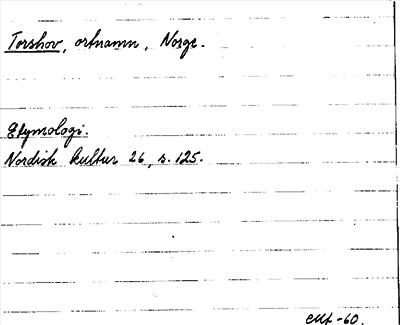 Torshov, ortnamn, Norge.
Etymologi.
Nordisk kultur 26, s. 125.
-60.